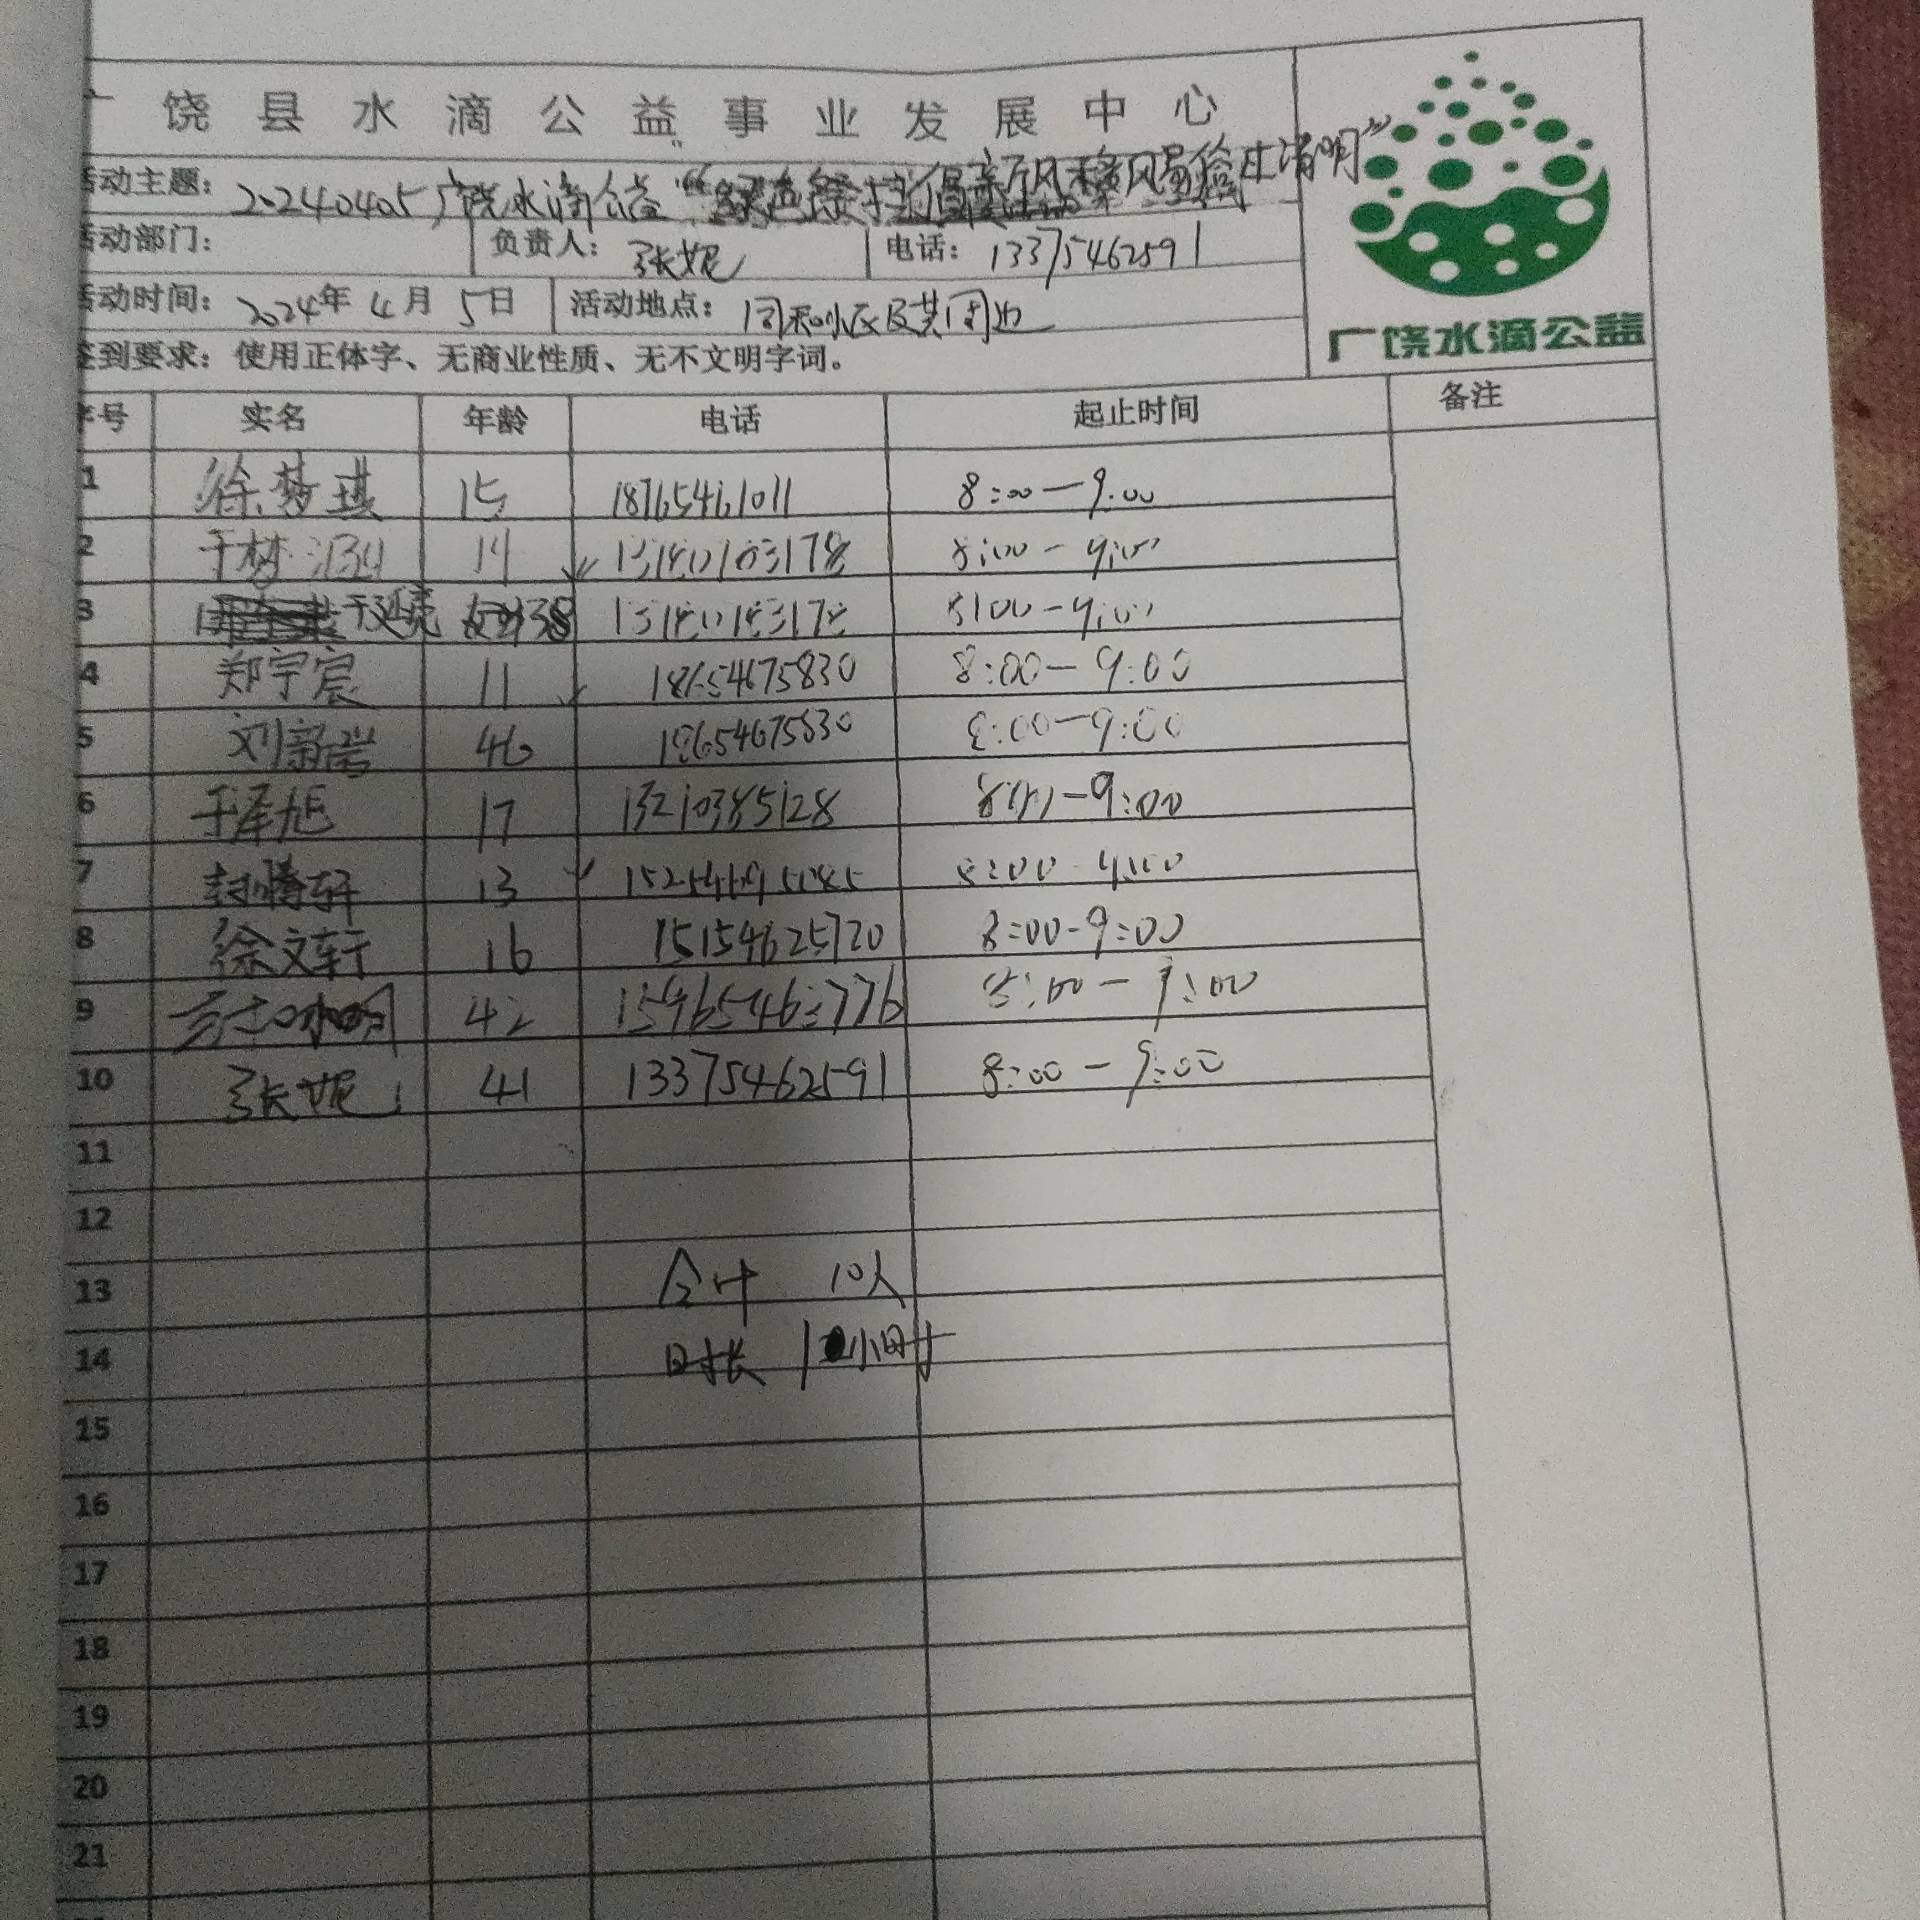 饶县水滴公益事业发展中心
活动主题：20240405广饶水滴公益“倡新风 清明”
活动部门： 负责人：张妮 电话：13375462591
活动时间：2024年4月5日 活动地点：同和小区及其周边
签到要求：使用正体字、无商业性质、无不文明字词。
广饶水滴公益
序号 实名 年龄 电话 起止时间 备注
1 徐梦琪 15 18765461011 8:00-9:00
2 于梦 8:00-9:00
3 于延亮 38 8:00-9:00
4 郑宇宸 11 18654675830 8:00-9:00
5 刘新岩 46 18654675830 8:00-9:00
6 于泽旭 17 13210385128 8:00-9:00
7 封腾轩 13 8:00-9:00
8 徐文轩 16 15154625720 8:00-9:00
9 42 15965463776 8:00-9:00
10 张妮 41 13375462591 8:00-9:00
11
12
13 合计 10人
14 时长 1小时
15
16
17
18
19
20
21